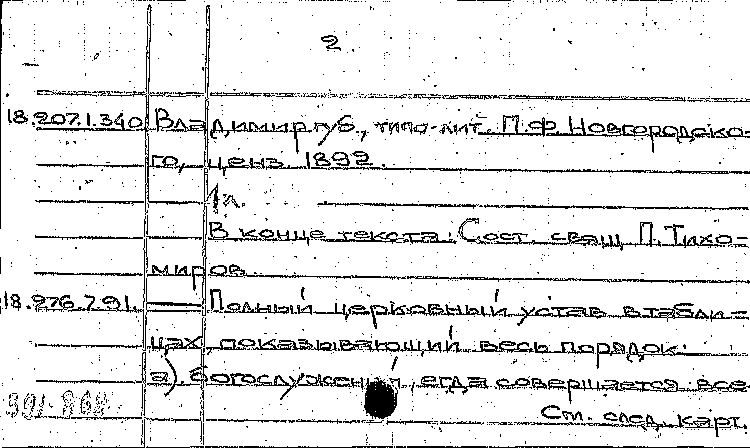 2
18.207.1.340 Владимир губ., типо-лит. П.Ф. Новгородско-
го, ценз. 1892.
1 л.
В конце текста: Сост. свящ. П. Тихо-
миров.
18.276.7.91. — Полный церковный устав в табли-
цах, показывающий весь порядок:
а) богослужений, егда совершается все-
См. след. карт.